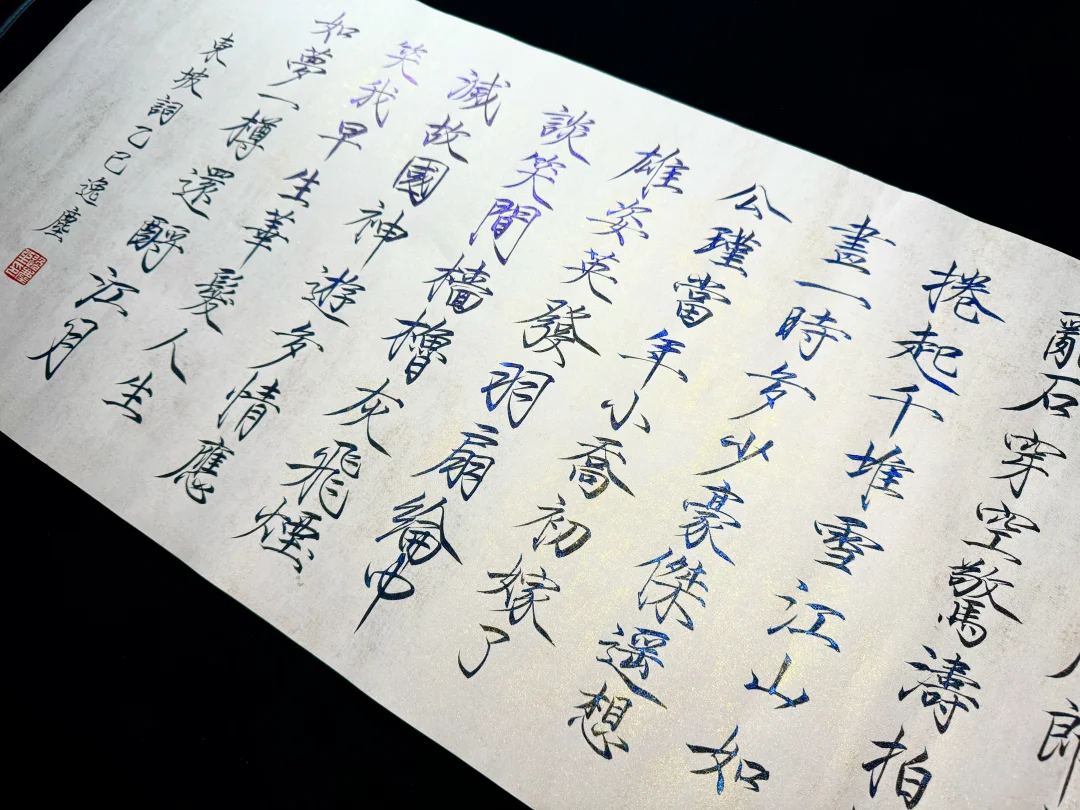 郎
亂石穿空驚濤拍
捲起千堆雪江山如
畫一時多少豪傑遥想
公瑾當年小喬初嫁了
雄姿英發羽扇綸巾
談笑間檣櫓灰飛煙
滅故國神遊多情應
笑我早生華髮人生
如夢一樽還酹江月
東坡詞乙巳逸塵